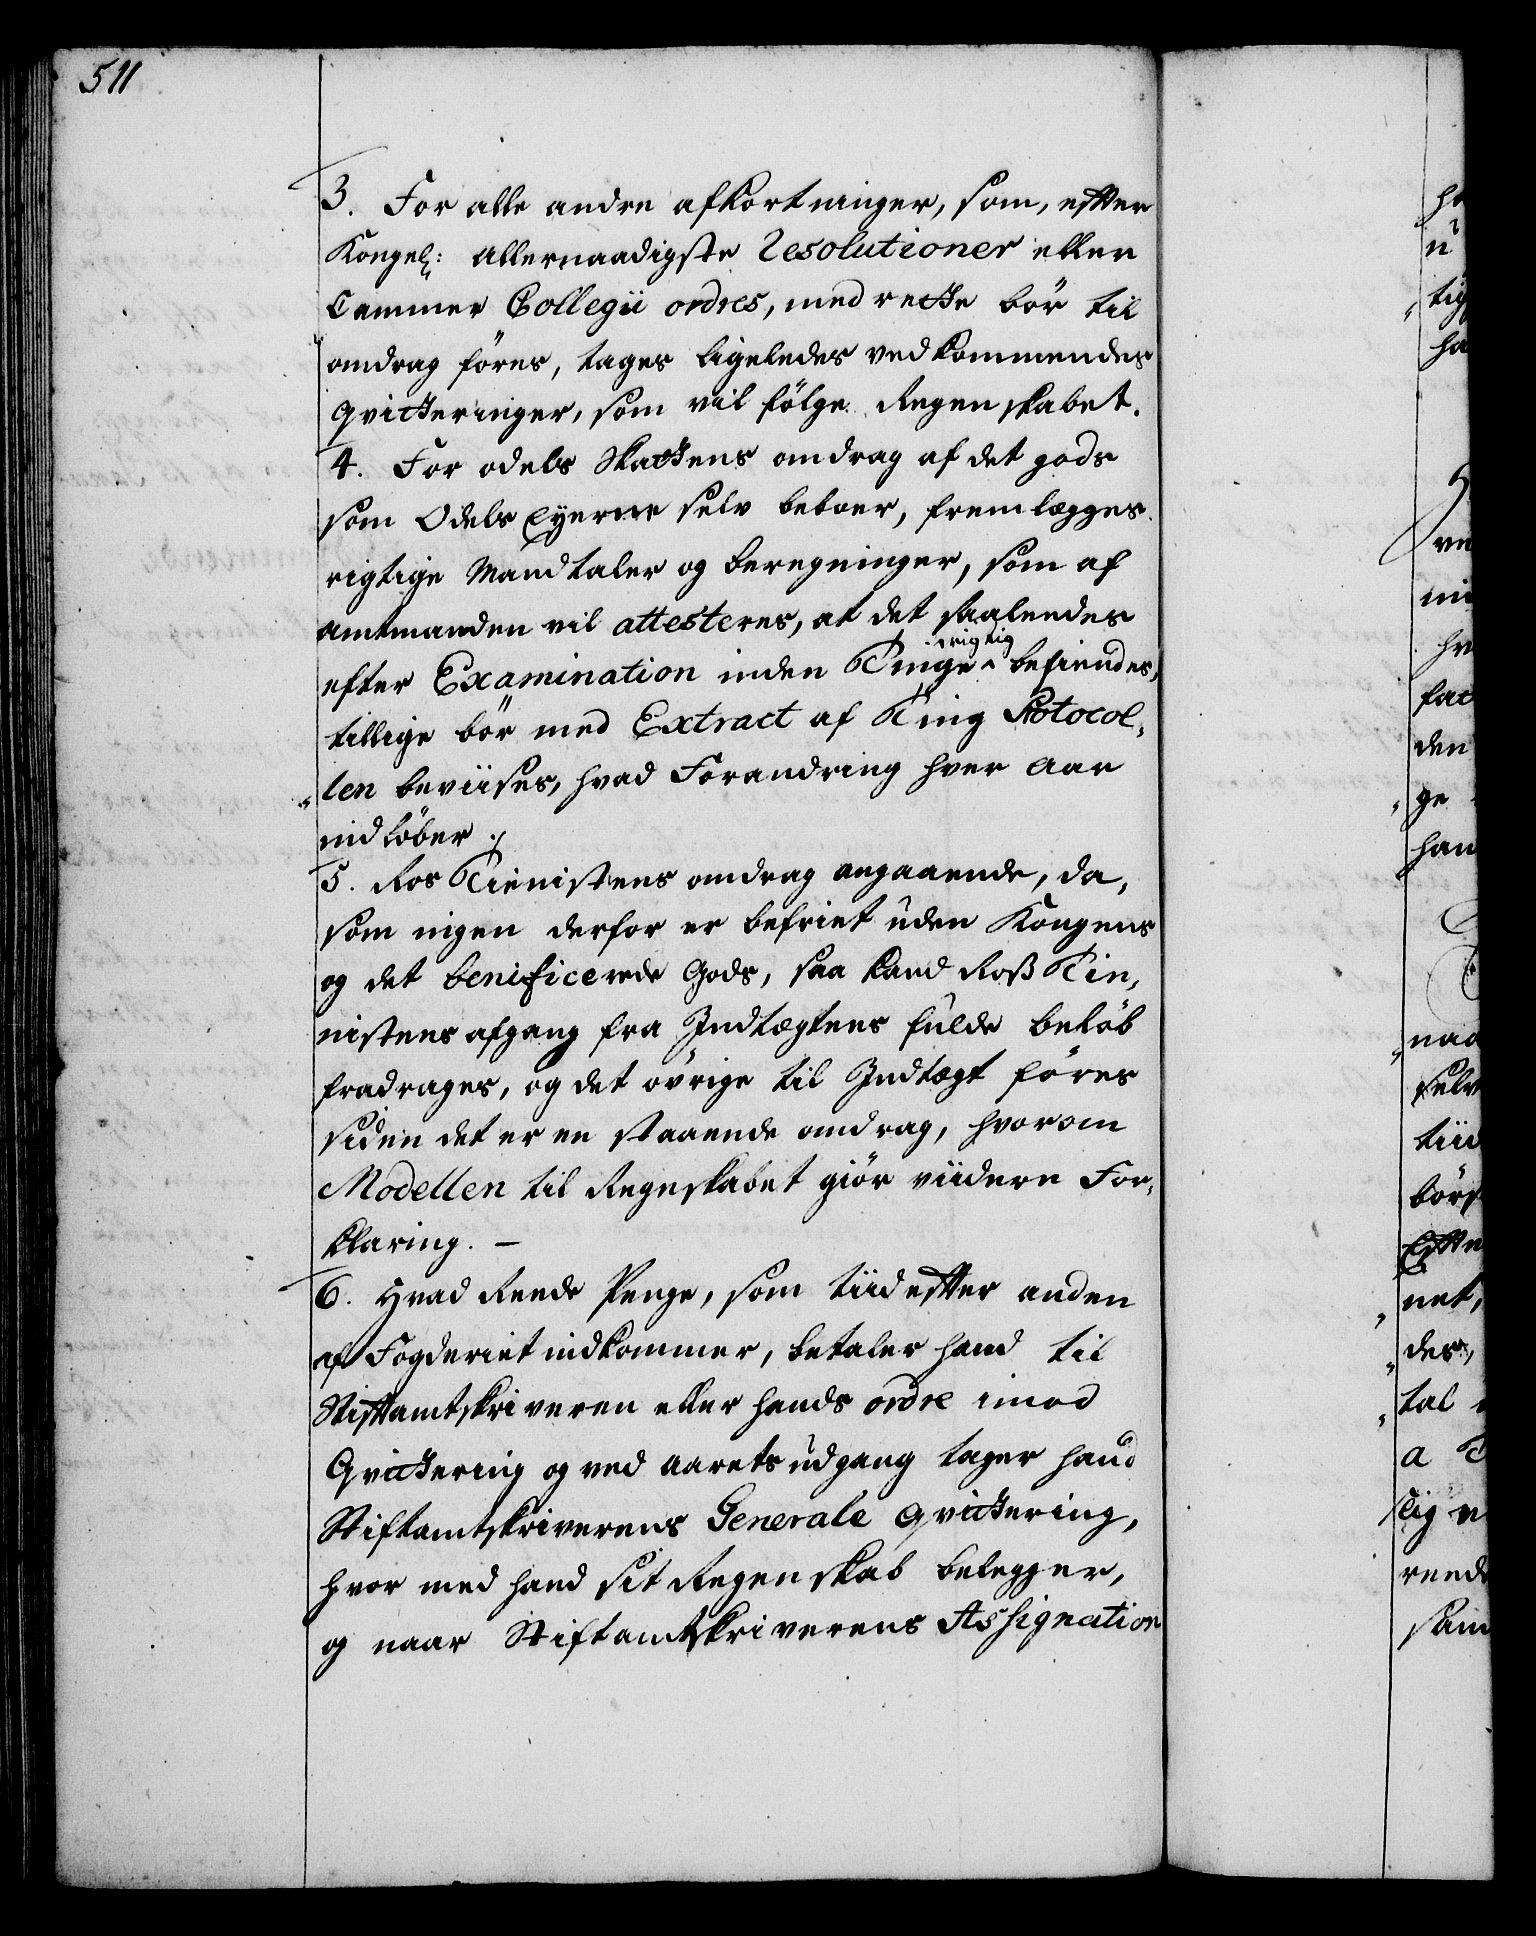 511
3. For alle andre afkortninger, som, efter
Kongel: allernaadigste Resolutioner eller
Cammer Collegii ordres, med rette bör til
omdrag föres, tages ligeledes vedkommendes
qvitteringer, som vil fölge Regenskabet.
4. For odels Skattens omdrag af det gods
som Odels Eyerne selv beboer, fremlegges
rigtige Mandtaler og beregninger, som af
amtmanden vil attesteres, at det saaleedes
rigtig
efter Examination inden Tinge ^ befindes,
tillige bör med Extract af Ting Protocol,
len beviises, hvad Forandring hver Aar
indlöber ./
5. Ros Tienistens omdrag angaaende, da,
som ingen derfor er befriet uden Kongens
og det beneficerede Gods, saa kand Roß Tien,
nistens afgang fra Indtægtens fulde belöb
fradrages, og det övrige til Indtægt föres
siden det er en staaende omdrag, hvorom
Modellen til Regnskabet giör viidere For,
klaring. -
6. Hvad Reede Penge, som tiid efter anden
af Fogderiet indkommer, betaler hand til
Stiftamtskriveren eller hands ordre imod
Qvittering og ved aarets udgang tager hand
Stiftamtskriverens Generale qvittering,
hvor med hand sit Regenskab belegger,
og naar Stiftamtskriverens Assignation